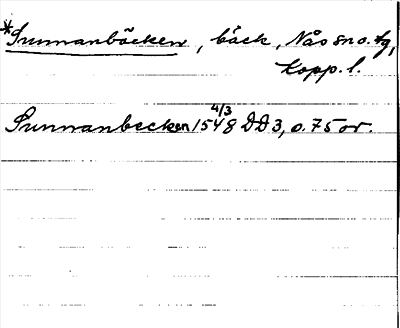 *Sunnanbäcken, bäck, Nås sn o. tg,
Kopp. l.
Sunnanbecken 1548 4/3 DD 3, o. 75 or.